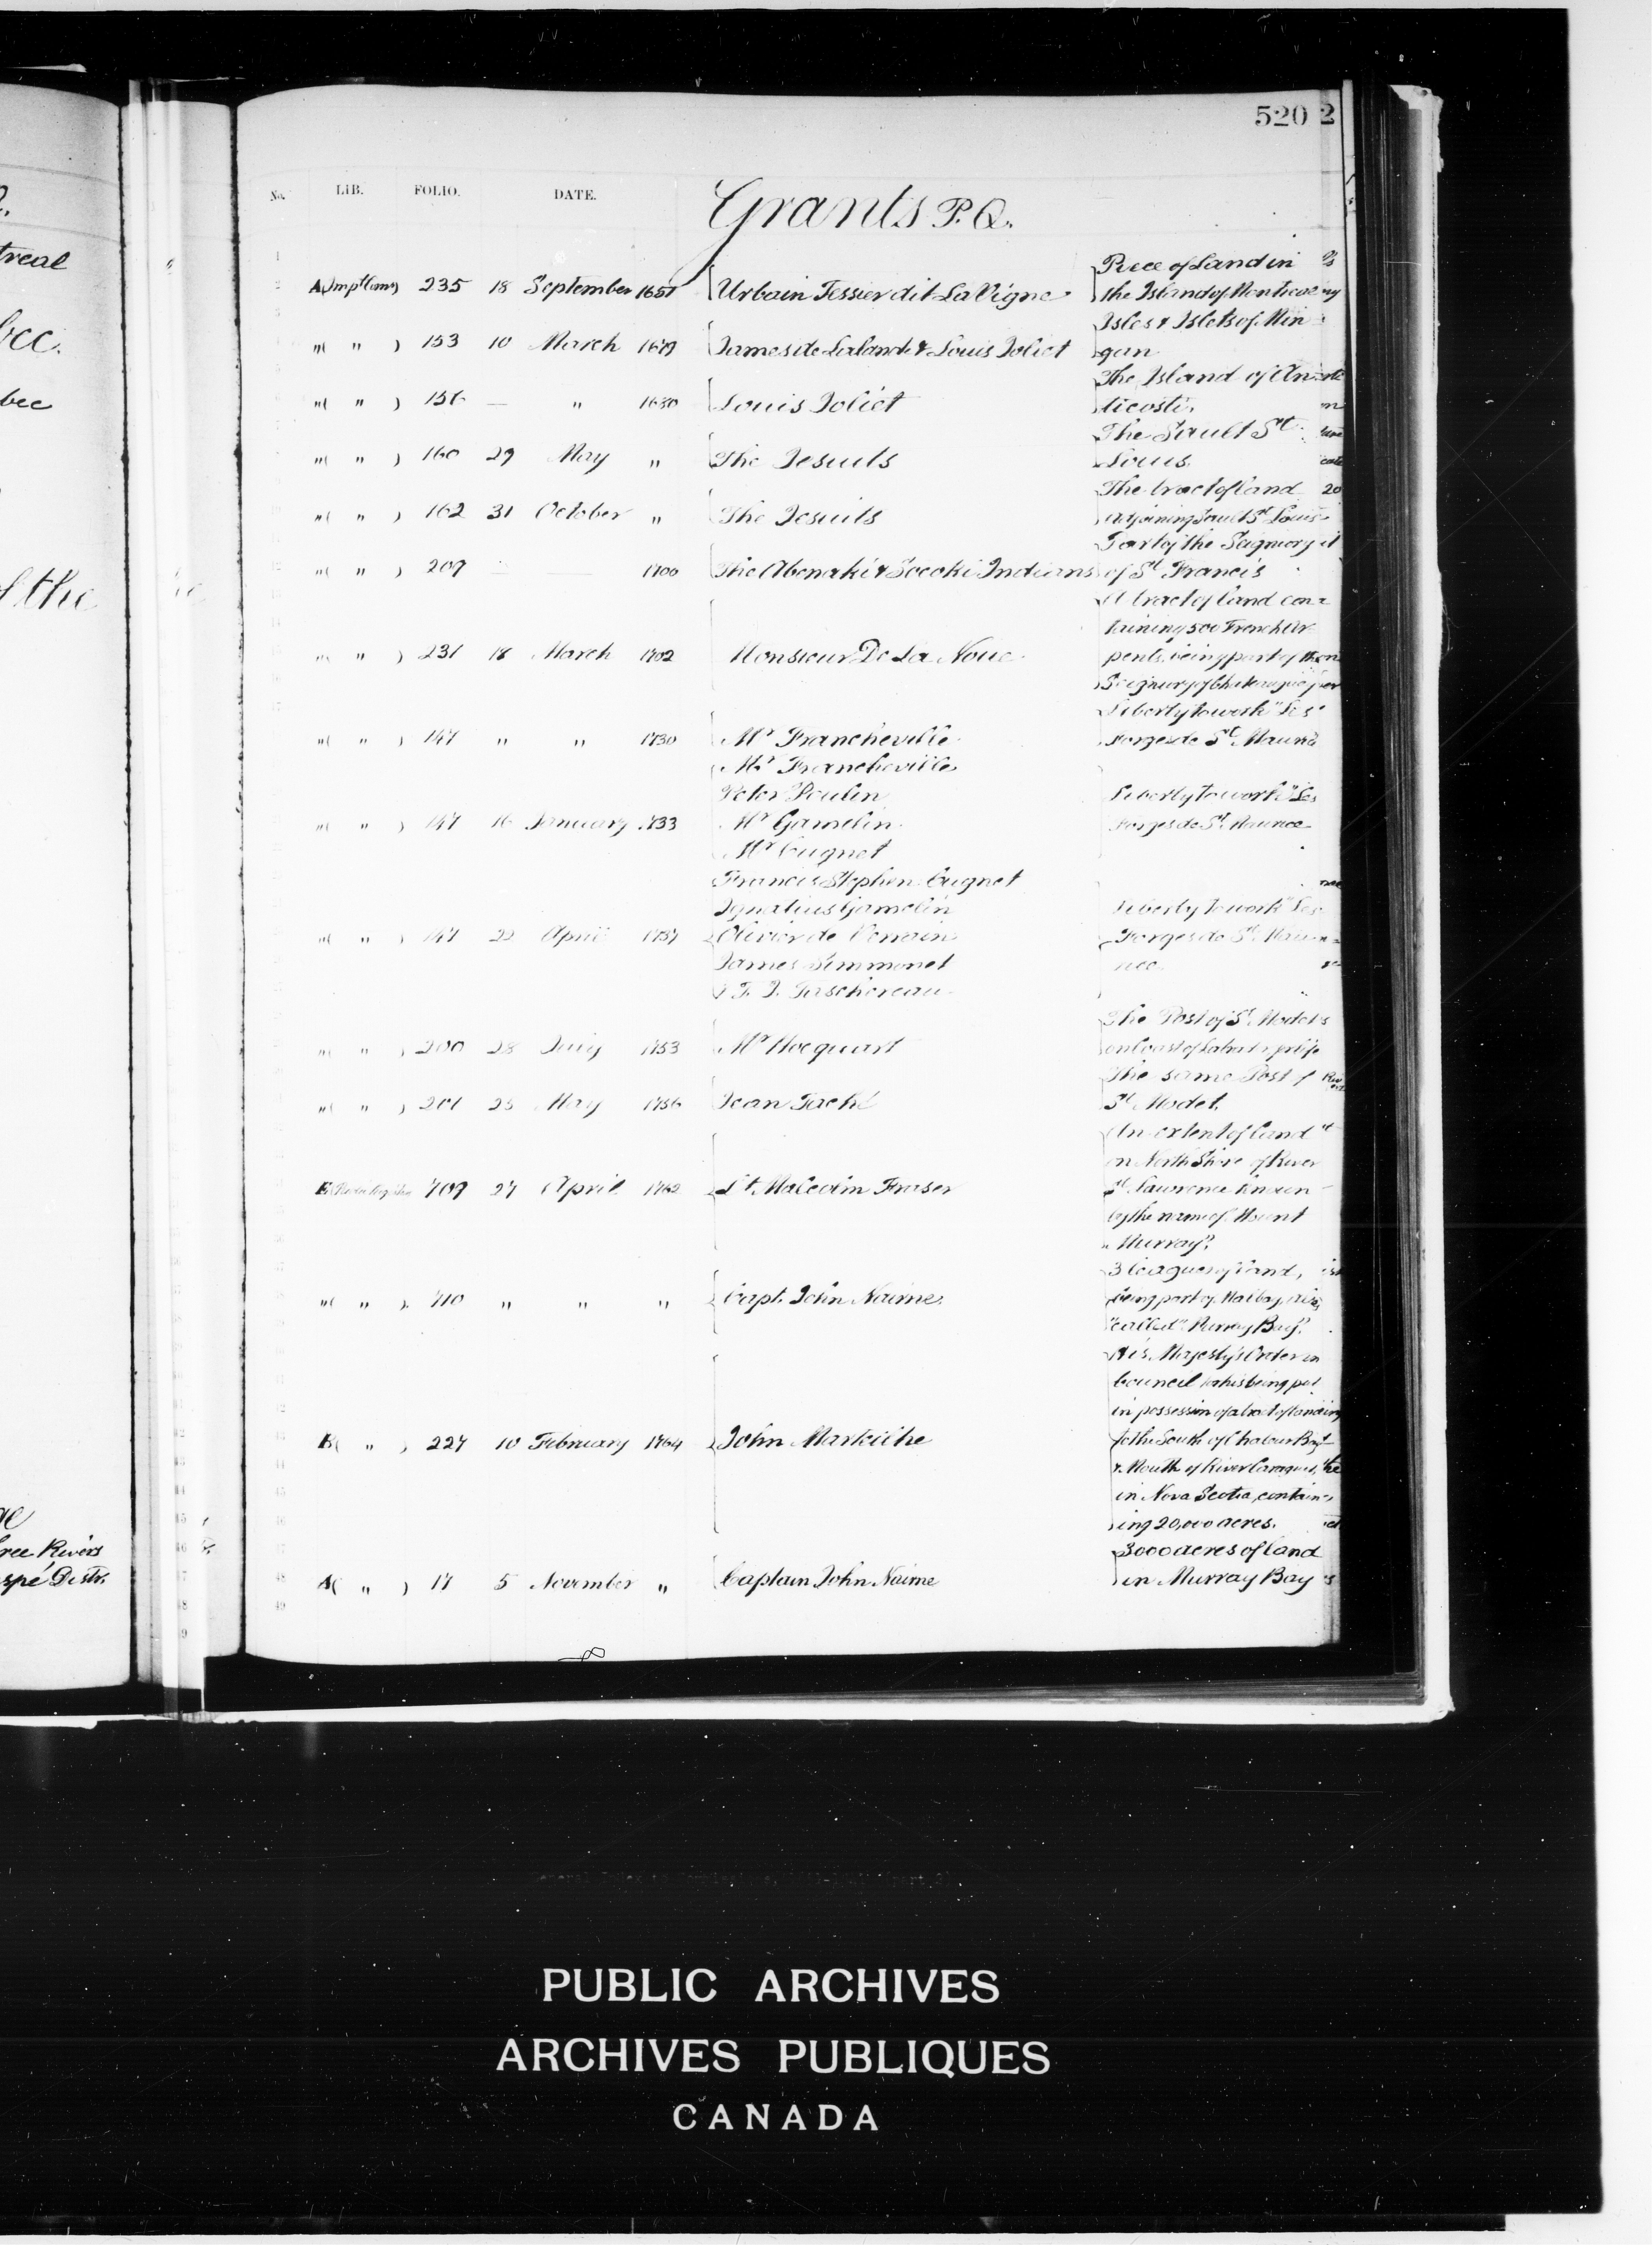 520 2
No. LIB. FOLIO. DATE.
Grants P.Q.
Piece of Land in
A(Impt Comn) 235 18 September 1657 Urbain Tessier dit La Vigne the Island of Montreal
Isles & Islets of Min
"( " ) 153 10 March 1679 James de Lalande & Louis Joliet gan
The Island of An-
"( " ) 156 — " 1680 Louis Joliet ticosti,
The Sault St.
"( " ) 160 29 May " The Jesuits Louis.
The tract of land
"( " ) 162 31 October " The Jesuits adjoining Sault St. Louis
Part of the Seignory
"( " ) 209 — — 1700 The Abenaki & Socoki Indians of St. Francis
A tract of land con-
taining 500 French Ar-
"( " ) 231 18 March 1702 Monsieur De La Noue pents, being part of the
Seignury of Chateaugué
Liberty to work "Les
"( " ) 147 " " 1730 Mr. Francheville Forges de St. Mauri
Mr. Francheville
Peter Poulin Liberty to work "Les
"( " ) 147 16 January 1733 Mr. Gamelin Forges de St. Maurice
Mr. Cugnet
Francis Stephen Cugnet
Ignatius Gamelin Liberty to work "Les
"( " ) 147 22 April 1737 Olivier de Vezain Forges de St. Mau
James Simmonet
& T. J. Taschereau
The Post of St. Modet
"( " ) 200 28 July 1753 Mr. Hocquart on Coast of Labrador
The same Post of
"( " ) 201 25 May 1756 Jean Taché St. Modet.
An extent of land
on North Shore of River
E 709 27 April 1762 Lt. Malcolm Fraser St. Lawrence known
by the name of Mount
"Murray".
3 leagues of land,
"( " ) 710 " " " Capt. John Nairne. being part of Malbay,
"called" Murray Bay".
His Majesty's Order in
Council for his being put
in possession of a tract of land
B( " ) 227 10 February 1764 John Marteilhe to the South of Chaleur Bay
& Mouth of River Caraquet,
in Nova Scotia, contain-
ing 20,000 acres.
3000 acres of land
A( " ) 17 5 November " Captain John Nairne in Murray Bay
treal
bec.
bec
of the
ree Rivers
spé Distr.
PUBLIC ARCHIVES
ARCHIVES PUBLIQUES
CANADA